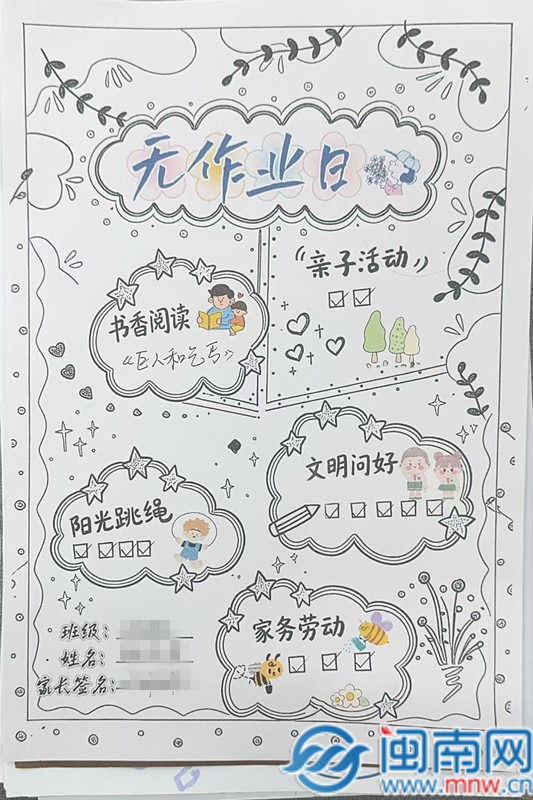 无作业日
《亲子活动》
书香阅读
《巨人和乞丐》
文明问好
阳光跳绳
家务劳动
班级：
姓名：
家长签名：
闽南网
www.mnw.cn